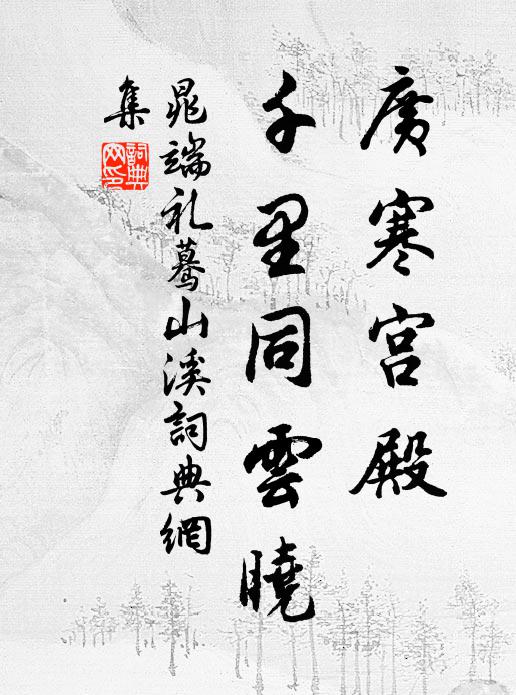 廣寒宮殿
千里同雲曉
晁端礼驀山溪詞典網
集
詞典網印